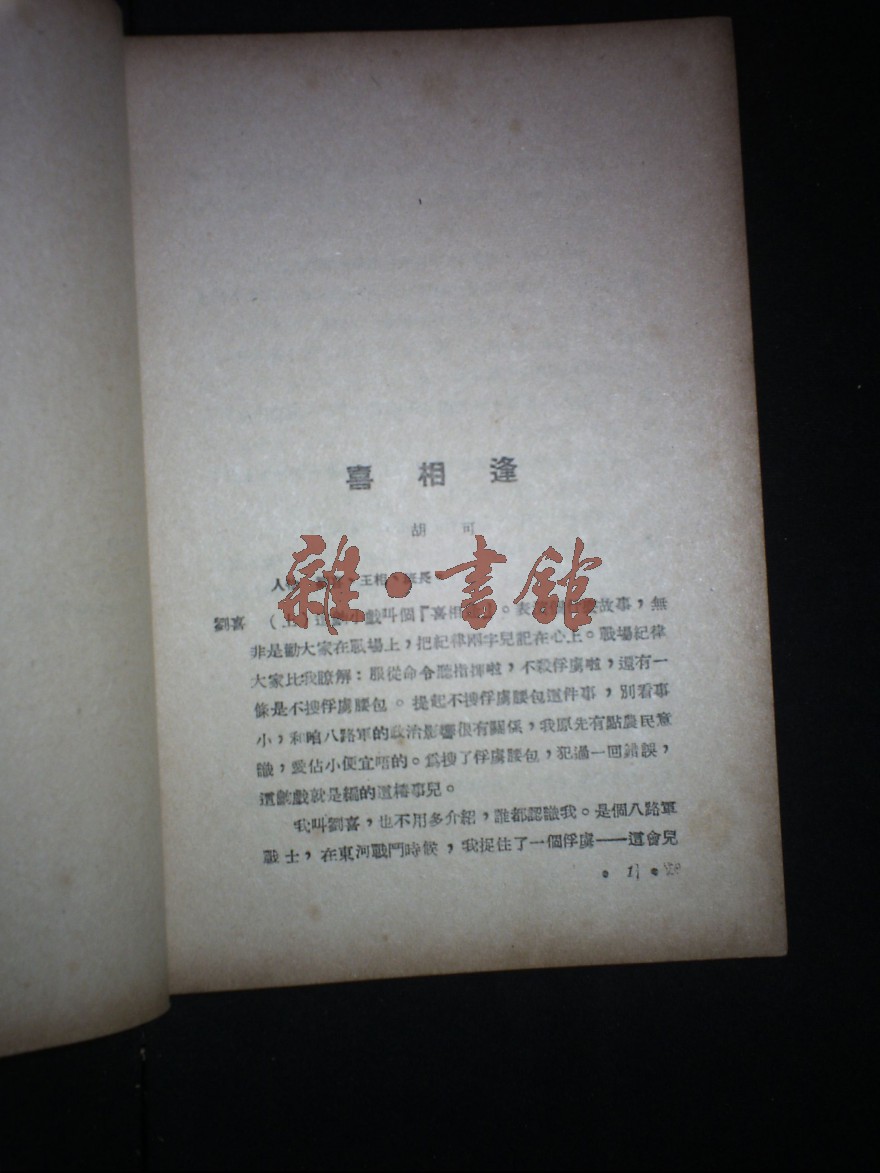 喜相逢
胡可
人物 王相、班長。
劉喜 (上)這齣小戲叫個『喜相逢』。表 故事，無
非是勸大家在戰場上，把紀律兩字兒記在心上。戰場紀律
大家比我瞭解：服從命令聽指揮啦，不殺俘虜啦，還有一
條是不搜俘虜腰包。提起不搜俘虜腰包這件事，別看事
小，和咱八路軍的政治影響很有關係，我原先有點農民意
識，愛佔小便宜唔的。爲搜了俘虜腰包，犯過一回錯誤，
這齣戲就是編的這樁事兒。
我叫劉喜，也不用多介紹，誰都認識我。是個八路軍
戰士，在東河戰鬥時候，我捉住了一個俘虜——這會兒
• 1 •
雜·書館